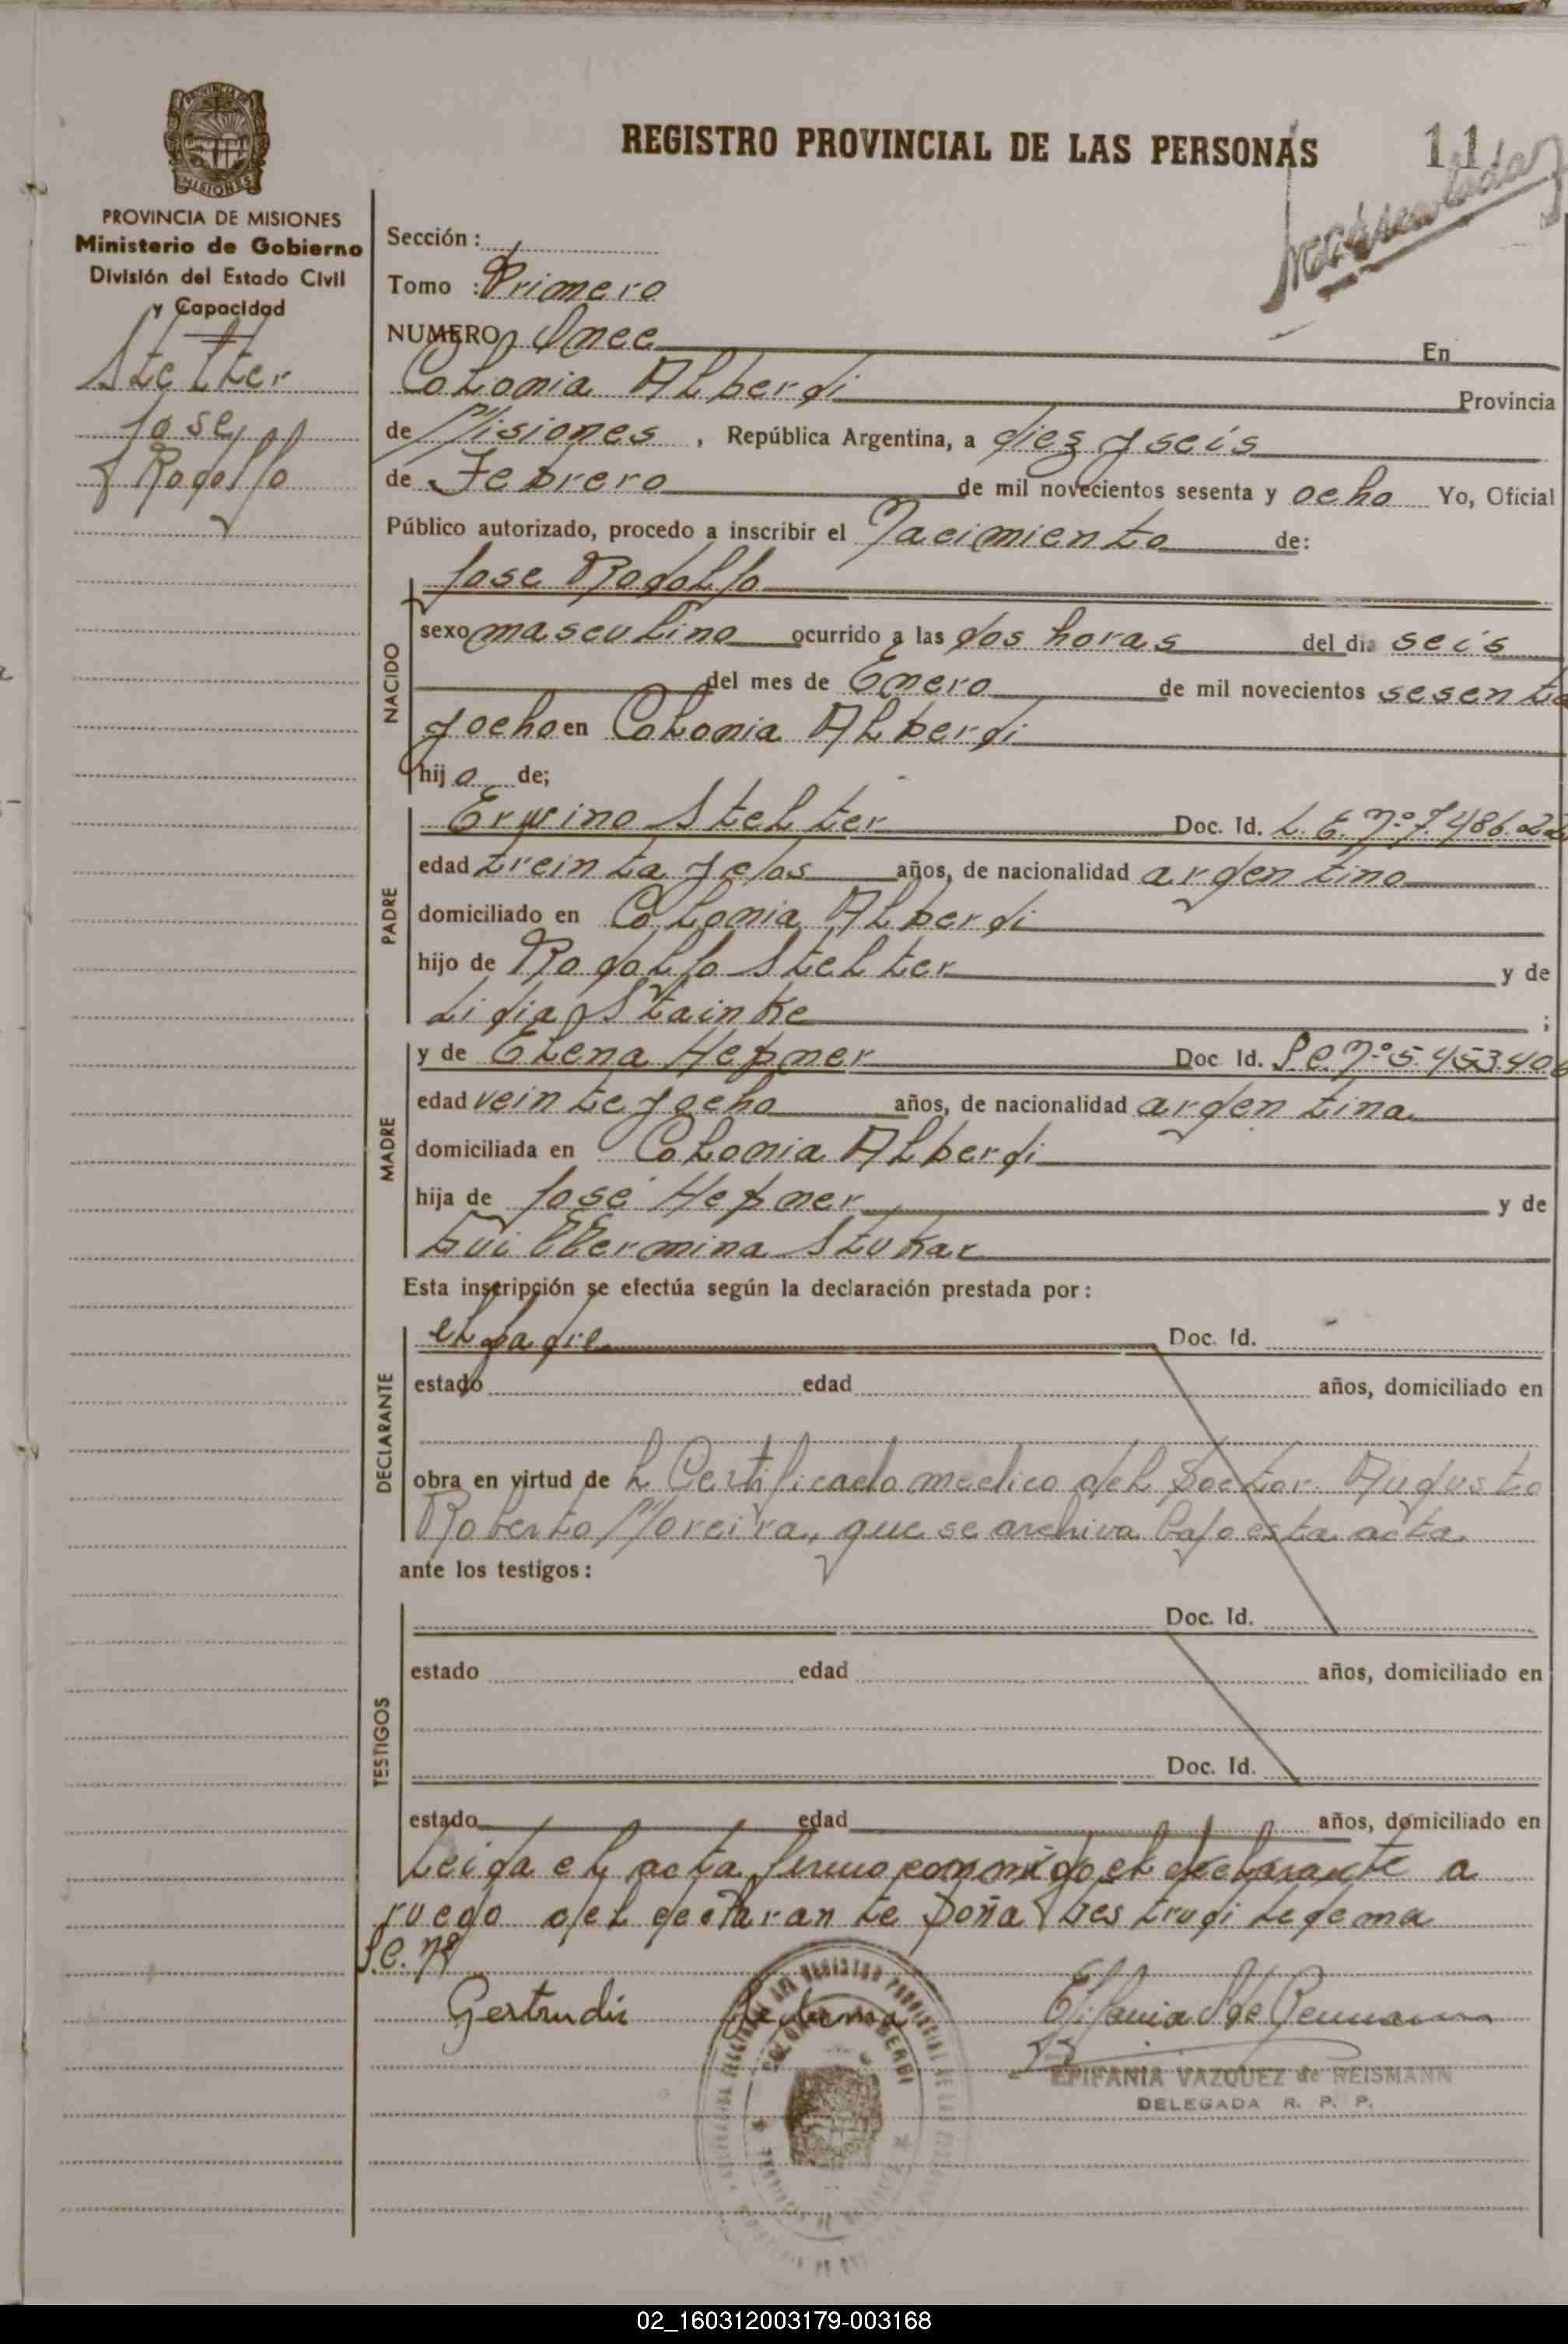 REGISTRO PROVINCIAL DE LAS PERSONAS
11
PROVINCIA DE MISIONES
Ministerio de Gobierno
División del Estado Civil
y Capacidad
Stelter
Jose
Rodolfo
Sección:
Tomo : Primero
NUMERO Once En
Colonia Alberdi Provincia
de Misiones, República Argentina, a diez y seis
de Febrero de mil novecientos sesenta y ocho Yo, Oficial
Público autorizado, procedo a inscribir el Nacimiento de:
NACIDO
Jose Rodolfo
sexo masculino ocurrido a las dos horas del día seis
del mes de Enero de mil novecientos sesenta
y ocho en Colonia Alberdi
hijo de;
PADRE
Erwino Stelter Doc. Id. L. E. Nº 7.486.22
edad treinta y dos años, de nacionalidad argentino
domiciliado en Colonia Alberdi
hijo de Rodolfo Stelter y de
Lidia Stainke ;
MADRE
y de Elena Hepner Doc Id. Nº 5.453.406
edad veinte y ocho años, de nacionalidad argentina
domiciliada en Colonia Alberdi
hija de José Hepner y de
Guillermina Stukar
Esta inscripción se efectúa según la declaración prestada por:
DECLARANTE
el padre Doc. Id.
estado edad años, domiciliado en
obra en virtud de l Certificado medico del Doctor Augusto
Roberto Moreira, que se archiva bajo esta acta
ante los testigos:
TESTIGOS
Doc. Id.
estado edad años, domiciliado en
Doc. Id.
estado edad años, domiciliado en
Leida el acta, firma conmigo el declarante a
ruego del declarante Doña
Gertrudis Ledema
EPIFANIA VAZQUEZ de REISMANN
DELEGADA R. P. P.
02_160312003179-003168